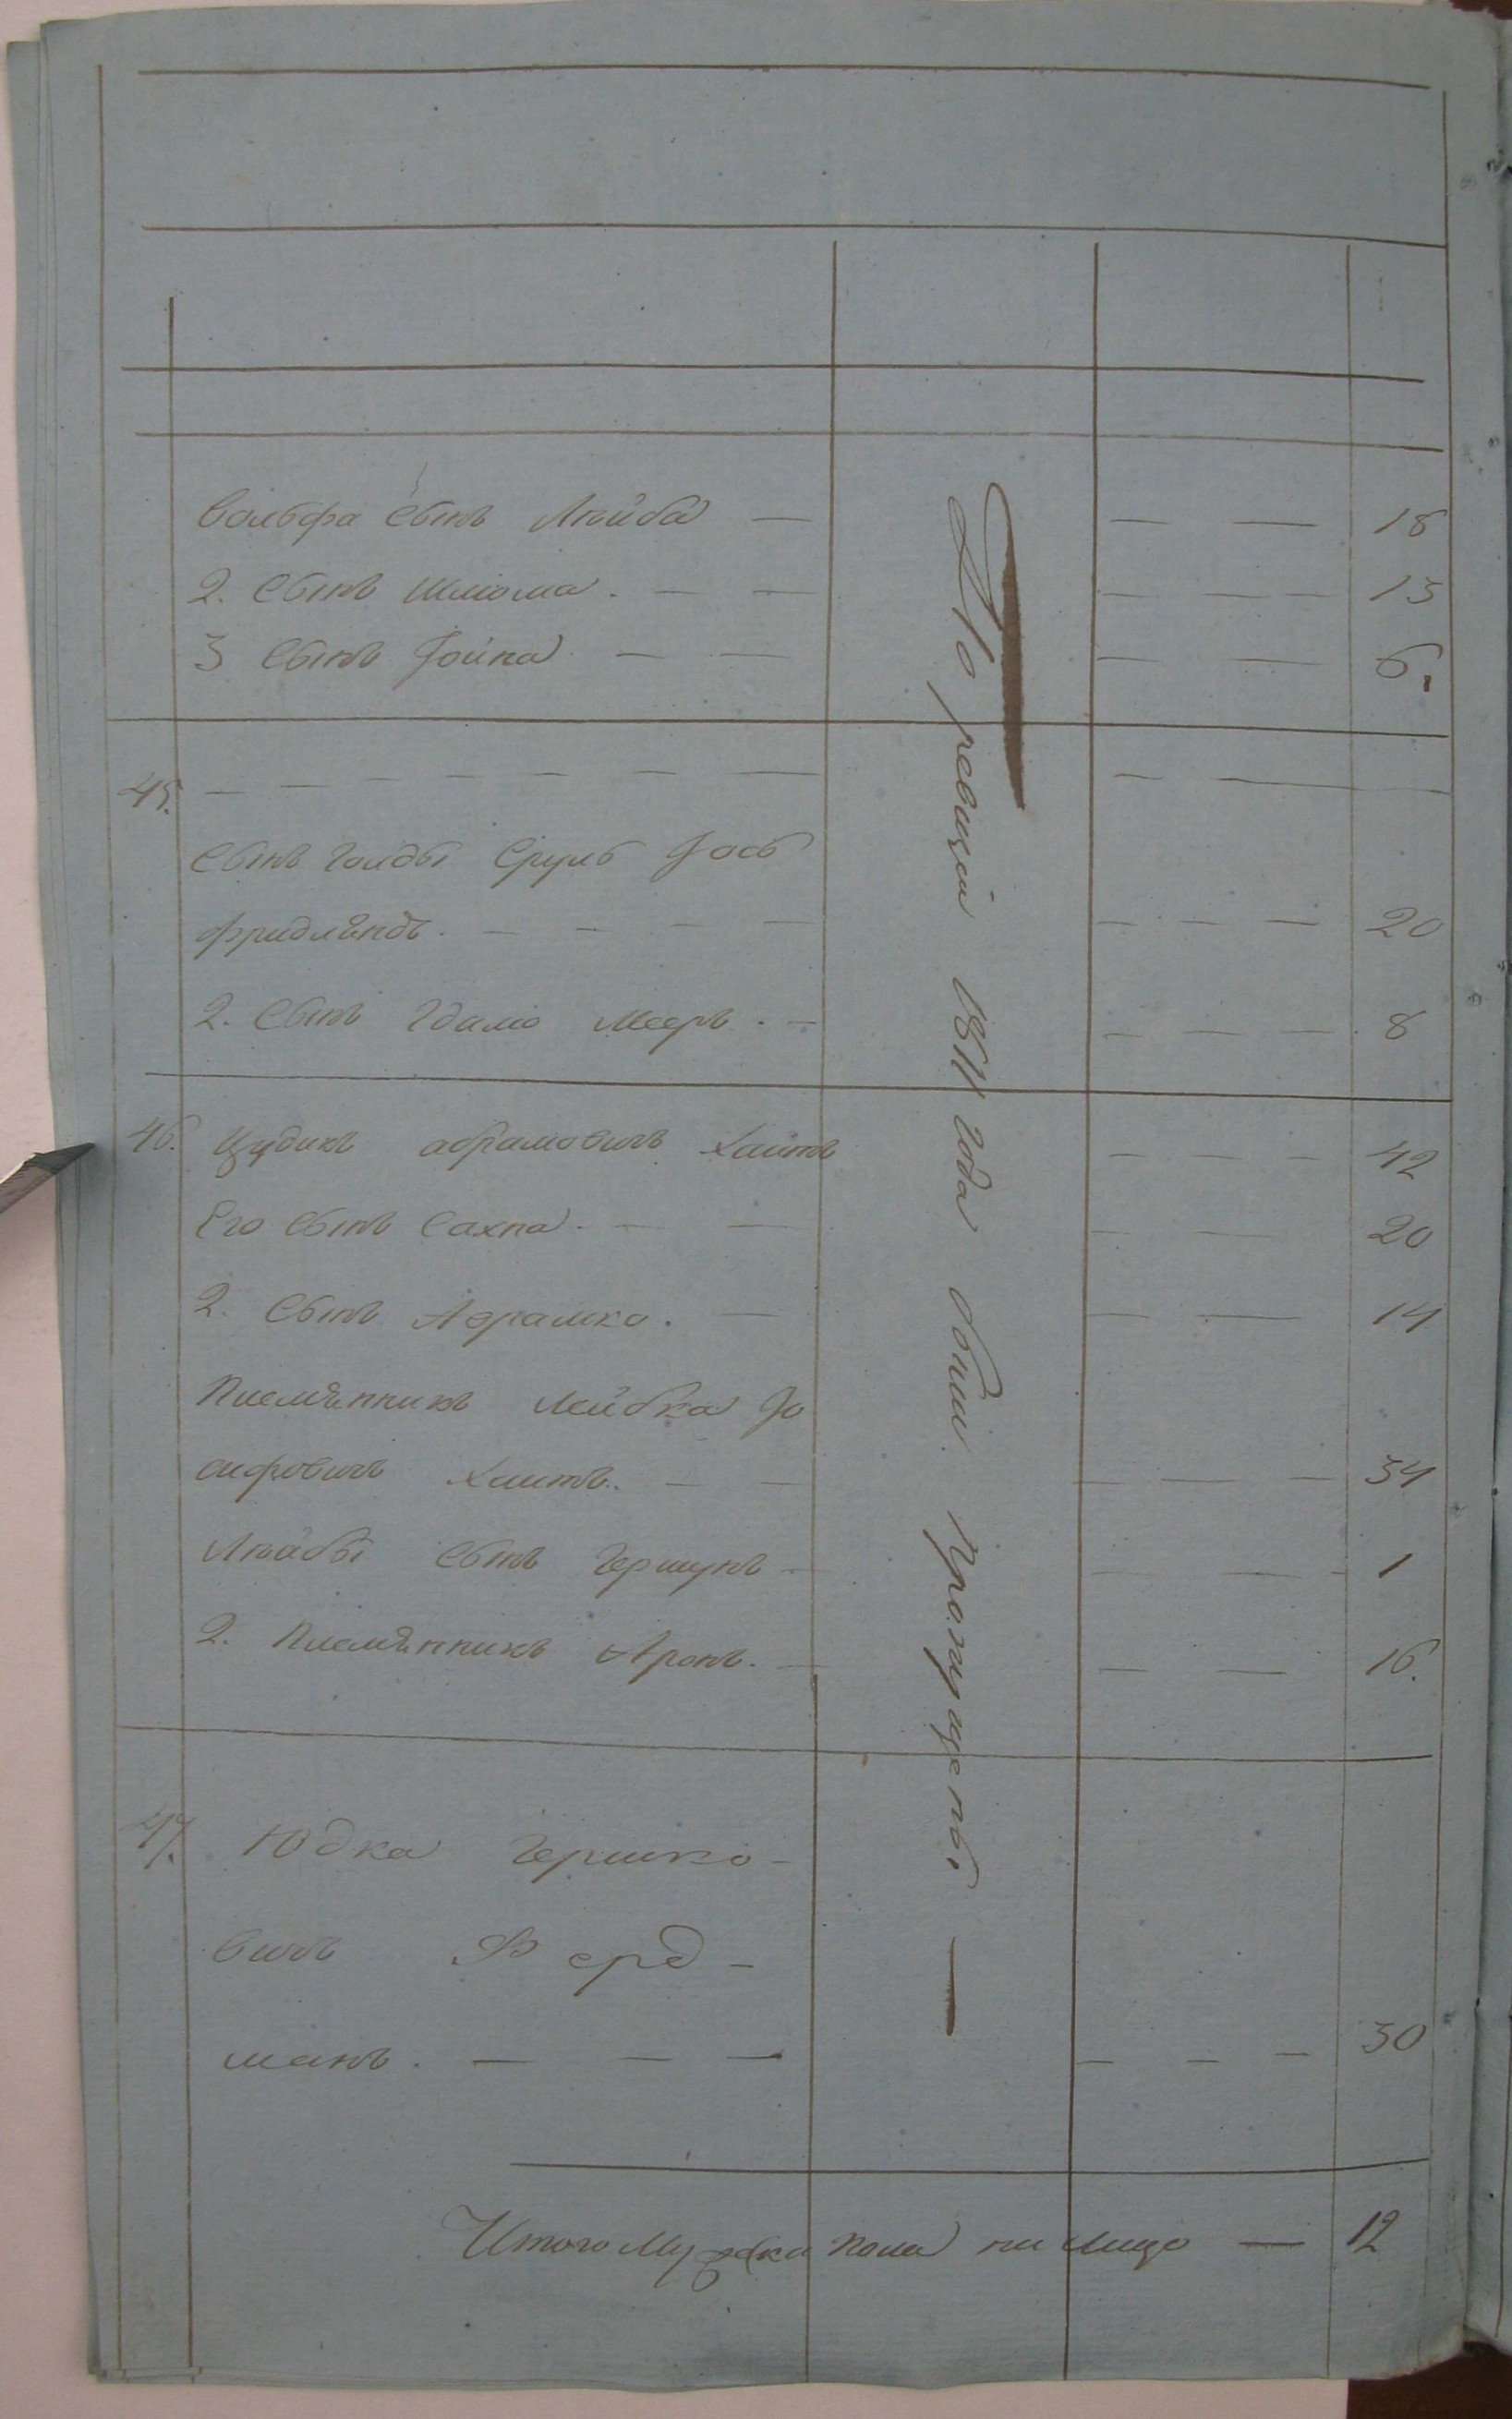 Вольфа сынъ Лейба — — — 18
2. сынъ Шлиома. — — — — — 13
3 сынъ Іойна — — — — 6.
45. — — — — — — — — —
сынъ Голды Сруль Іось
Фридлѣндъ. — — — — — — — 20
2. сынъ Гдалю Мееръ. — — — — 8
46. Цудикъ Абрамовичъ Хаитъ — — — 42
Его сынъ Сахна. — — — — 20
2. сынъ Абрамко. — — — 14
Племѣнникъ Лейбка Іо
сифовичъ Хаитъ. — — — — — 34
Лейбы сынъ Гершунъ — — — 1
2. Племѣнникъ Аронъ. — — — 16.
47. Юдка Гершко-
вичъ Ферд-
манъ. — — — — — — 30
По ревизіи 1811 года были пропущены —
Итого Мужеска пола на лицо — 12